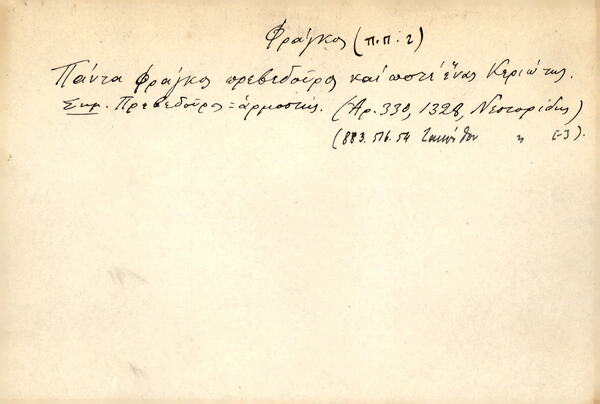 Φράγκος (π.π. 2)
Πάντα Φράγκος πρεβεδοῦρος καί ποτέ ἕνας Κεριώτης.
Σημ. Πρεβεδοῦρος = ἁρμοστής. (Ἀρ. 330, 1328, Νεστορίδης)
(883. 516. 54 Ζακύνθου " [-3).